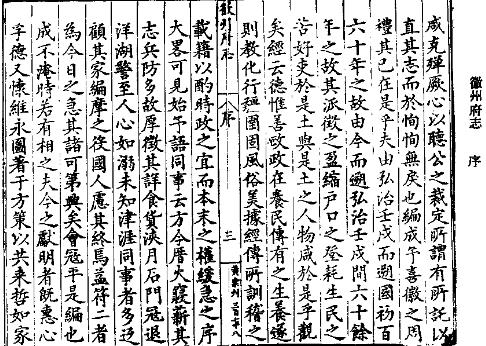 徽州府志 序
咸克殫厥心以聽公之裁定所謂有所託以
直其志而於恂恂無矣也編成予喜徽之周
禮其已在是乎夫由弘治壬戌而遡國初百
六十年之故由今而遡弘治壬戌間六十餘
年之故其派徵之盈縮户口之登耗生民之
苦好吏於是土與是土之人物咸於是乎觀
矣經云德惟善政政在養民傳有之生養遂
則教化行風俗美據經傳所訓稽之
徽州府志 序 三
載籍以酌時政之宜而本末之權緩急之序
大畧可見始予語同事云方今厝火寢薪其
志兵防多故厚徵其詳食貨浹月石門冦退
洋湖警至人心如溺未知津涯同事者多迂
顧其家編摩之役國人慮其終焉益符二者
為今日之急其諸可第與矣會冦平是編也
成不淹時若有相之夫今之獻明者既惠心
孚德又懷維永圖著于方策以共来哲如家